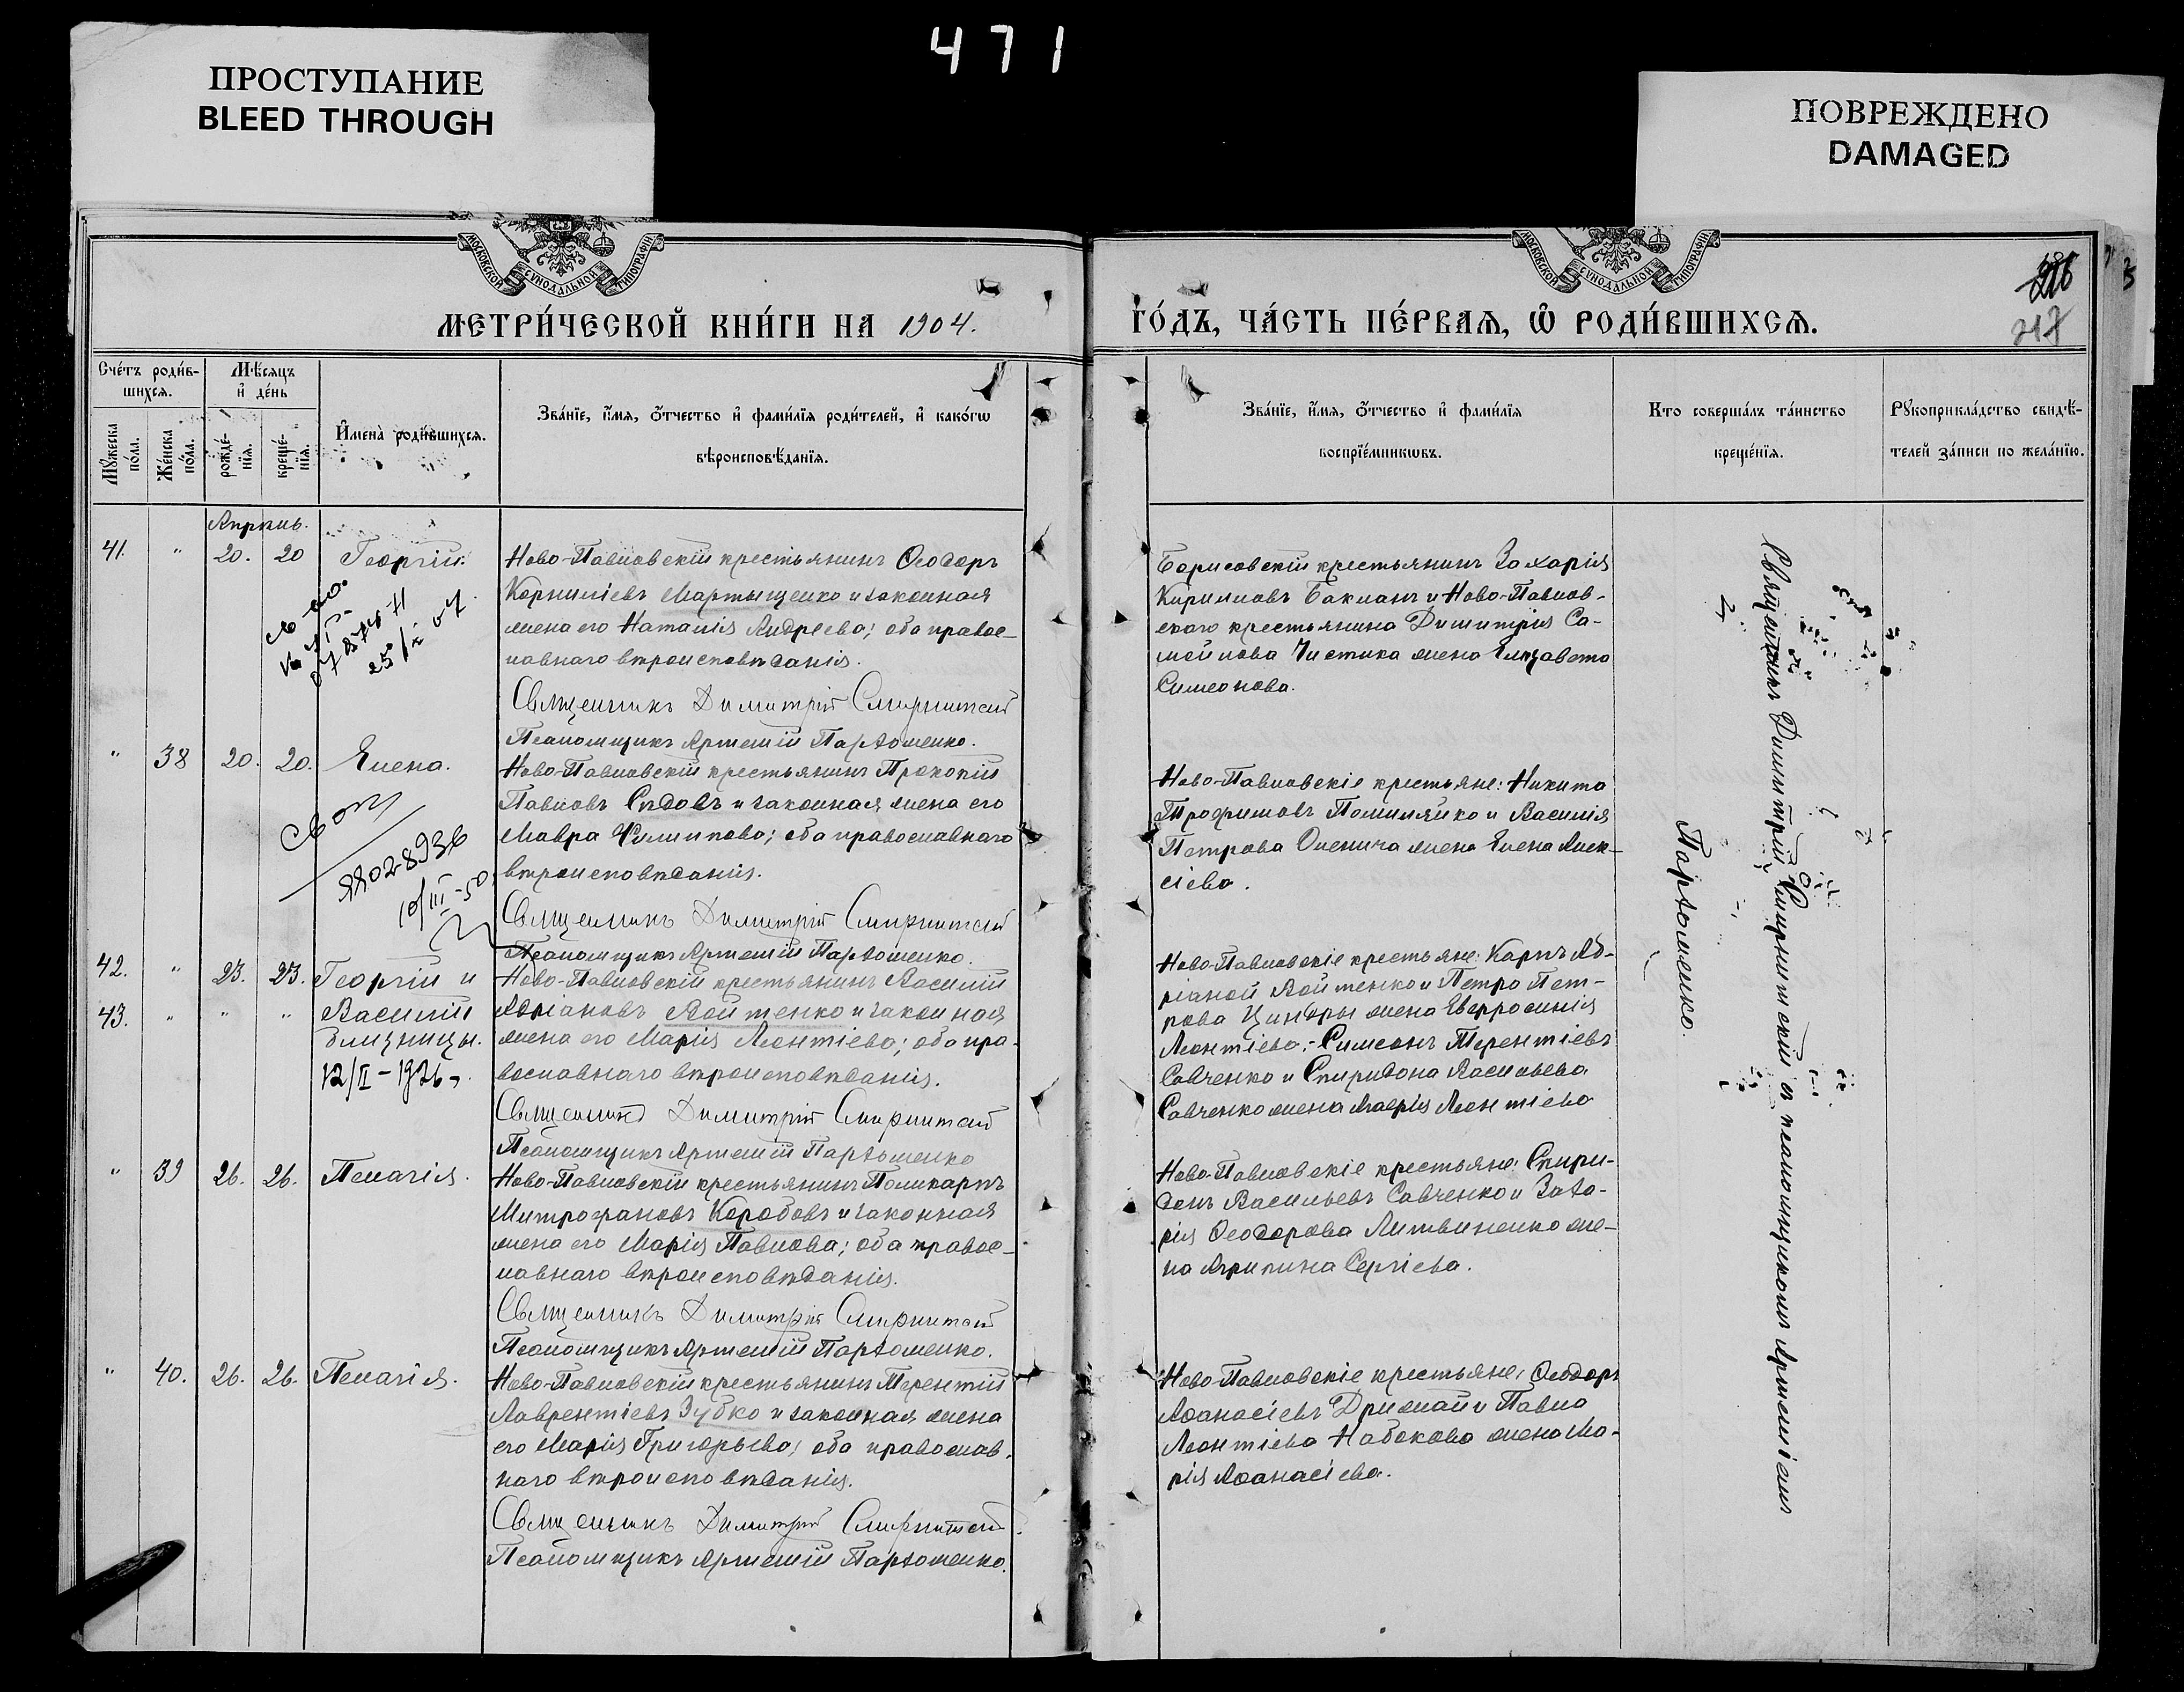 471
ПРОСТУПАНИЕ
BLEED THROUGH
ПОВРЕЖДЕНО
DAMAGED
МОСКОВСКОЙ СѴНОДАЛЬНОЙ ТИПОГРАФІИ
МОСКОВСКОЙ СѴНОДАЛЬНОЙ ТИПОГРАФІИ
217
МЕТРИ́ЧЕСКОЙ КНИ́ГИ НА 1904.
ГО́ДЪ, ЧА́СТЬ ПЕ́РВАѦ, Ѡ҆ РОДИ́ВШИХСѦ.
Сче́тъ роди́в-
шихсѧ.
Мѣ́сѧцъ
и҆ де́нь
Мꙋ́жеска
по́ла.
Же́нска
по́ла.
рожде́-
нїѧ.
креще́-
нїѧ.
И҆мена̀ роди́вшихсѧ.
Зва́нїе, и҆́мѧ, ѻ҆́тчество и҆ фами́лїѧ роди́телей, и҆ како́гѡ
вѣроисповѣ́данїѧ.
Зва́нїе, и҆́мѧ, ѻ҆́тчество и҆ фами́лїѧ
воспрїе́мникѡвъ.
Кто соверша́лъ та́инство
креще́нїѧ.
Рꙋкоприкла́дство свидѣ́-
телей за́писи по жела́нїю.
Апрѣль.
41. " 20. 20 Георгій.
Ново-Павловскій крестьянинъ Ѳеодоръ
Корниліевъ Мартыщенко и законная
жена его Наталія Андреева; оба правос-
лавнаго вѣроисповѣданія.
Священникъ Димитрій Смирнитскій
Псаломщикъ Артемій Пархоменко.
Борисовскій крестьянинъ Захарія
Кирилловъ Баклан и Ново-Павлов-
скаго крестьянина Димитрія Са-
мойлова Чистика жена Елизавета
Симеонова.
" 38 20. 20. Елена.
10/III-50
Ново-Павловскій крестьянинъ Прокопій
Павловъ Сѣдовъ и законная жена его
Мавра Филипова; оба православнаго
вѣроисповѣданія.
Священникъ Димитрій Смирнитскій
Псаломщикъ Артемій Пархоменко.
Ново-Павловскіе крестьяне: Никита
Трофимовъ Помиляйко и Василія
Петрова Оленича жена Елена Алек-
сіева.
42. " 23. 23. Георгій и
43. " " " Василій
близницы.
12/II-1926
Ново-Павловскій крестьянинъ Василій
Адріановъ Войтенко и законная
жена его Марія Леонтіева; оба пра-
вославнаго вѣроисповѣданія.
Священникъ Димитрій Смирнитскій
Псаломщикъ Артемій Пархоменко
Ново-Павловскіе крестьяне: Карпъ Ад-
ріаной Войтенко и Петра Пет-
рова Цинбры жена Евфросинія
Леонтіева; - Симеонъ Терентіевъ
Савченко и Спиридона Васильева
Савченко жена Марія Леонтіева
" 39 26. 26. Пелагія.
Ново-Павловскій крестьянинъ Поликарпъ
Митрофановъ Коробовъ и законная
жена его Марія Павлова; оба правос-
лавнаго вѣроисповѣданія.
Священникъ Димитрій Смирнитскій
Псаломщикъ Артемій Пархоменко.
Ново-Павловскіе крестьяне: Спири-
донъ Васильевъ Савченко и Заха-
рія Ѳеодорова Литвиненко же-
на Агрипина Сергіева.
" 40. 26. 26. Пелагія.
Ново-Павловскій крестьянинъ Терентій
Лаврентіевъ Зубко и законная жена
его Марія Григорьева; оба православ-
наго вѣроисповѣданія.
Священникъ Димитрій Смирнитскій
Псаломщикъ Артемій Пархоменко.
Ново-Павловскіе крестьяне: Ѳеодоръ
Аѳанасіевъ Дрижай и Павла
Леонтіева Набокова жена Ма-
рія Аѳанасіева.
Священникъ Димитрій Смирнитскій съ псаломщикомъ Артеміемъ
Пархоменко.